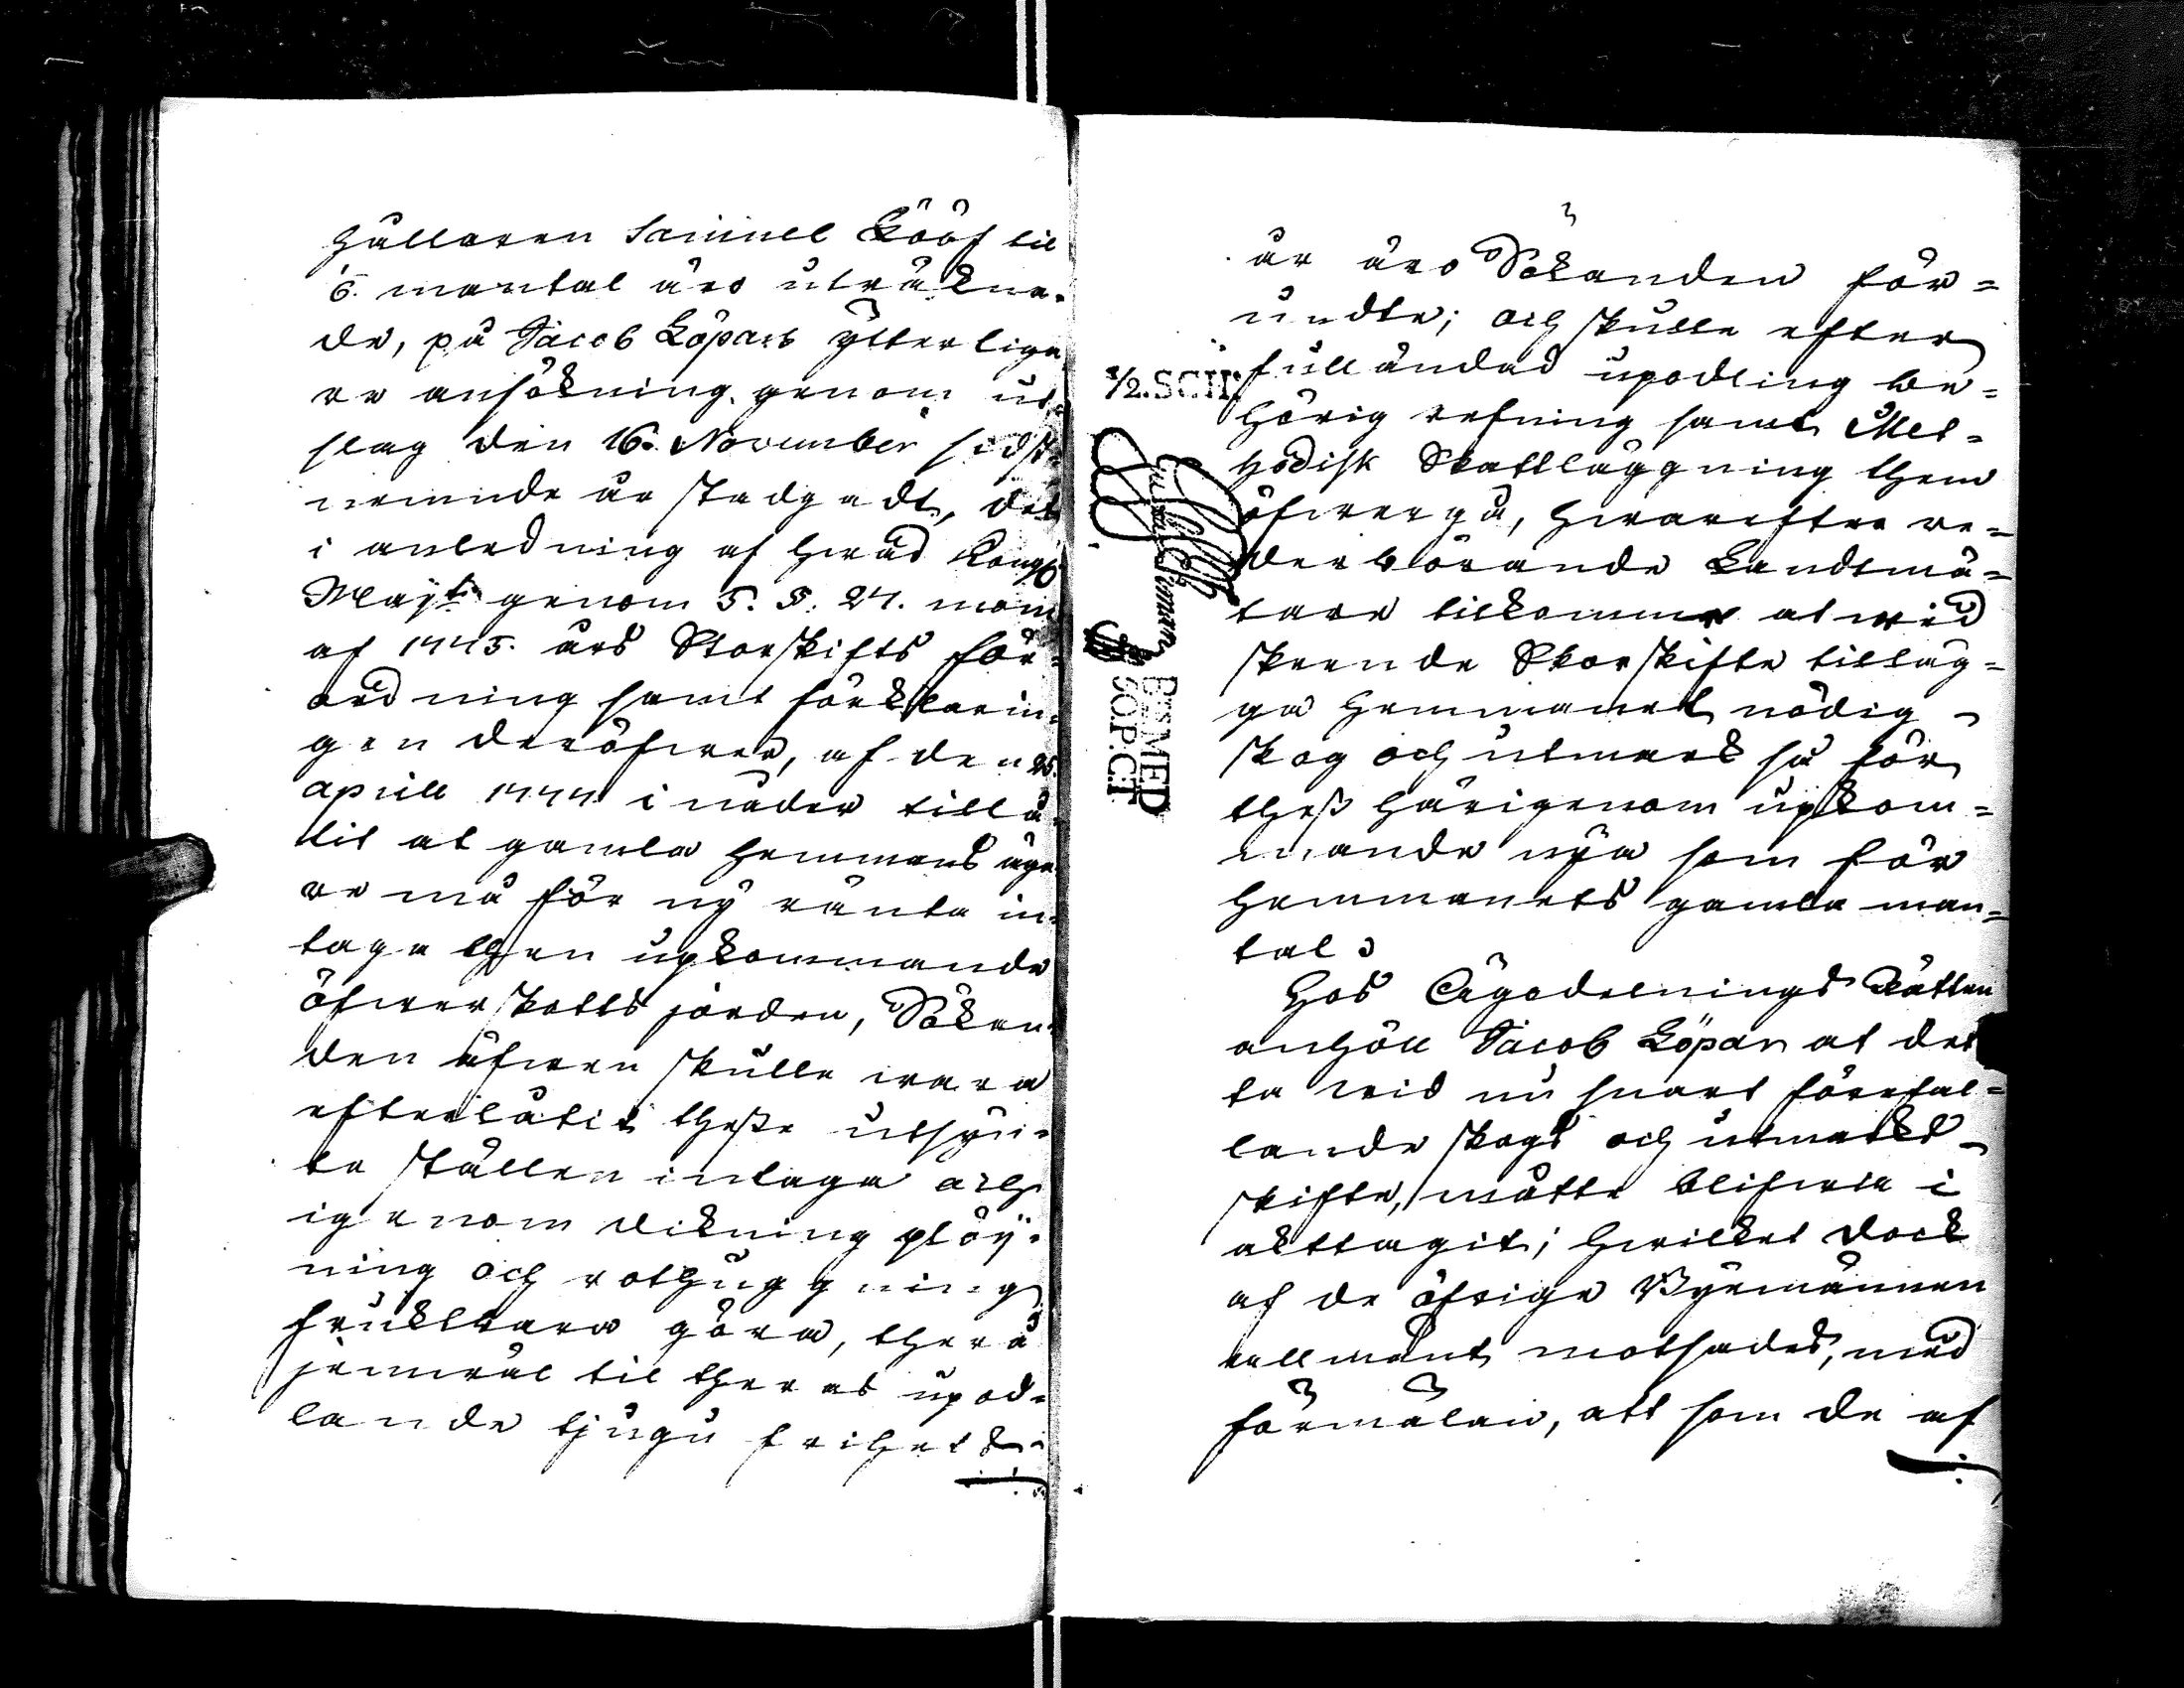 hållaren Samuel Rööf til
1/6. mantal äro uträkna-
de, på Jacob Löpars ytterliga
re ansökning genom ut-
slag den 16. November sidst-
nemnde år stadgadt, det
i anledning af hwad Kongl
Maj:t genom 5. §. 27. mom
af 1775. års Storskifts för-
ordning samt förklarin-
gen deröfwer, af den 25.
aprill 1777. i nåder tillå-
tit at gamla Hemmans äga
re må för ny ränta in-
taga then upkommande
öfwerskotts jorden, Söken-
den äfwen skulle wara
efterlåtit thesse utsyn-
te ställen intaga och
igenom dikning plöÿ-
ning och rothuggning
fruktbara göra, thera
jemwäl til theras upod-
lande tjugu frihets-
år äro Sökanden för=
undte; och skulle efter
fulländad upodling be=
hörig refning samt Met=
hodisk Skattläggning them
öfwergå, hwarefter ve=
derbörande Landtmä=
tare tilkommer at wid
skeende Storskifte tilläg=
ga Hemmanet nödig
skog och utmark så för
thess härigenom upkom=
mande nya som för
Hemmanets gamla man=
tal
Hos Ägodelnings Rätten
anhöll Jacob Löpar at det
ta wid nu snart förefal=
lande skogs och utmarks
skifte, måtte blifwa i
akttagit; hwilket dock
af de öfrige Byemännen
allmänt motsades, med
förmälan, att som de af
1/2. SCH:
SO.P:CT